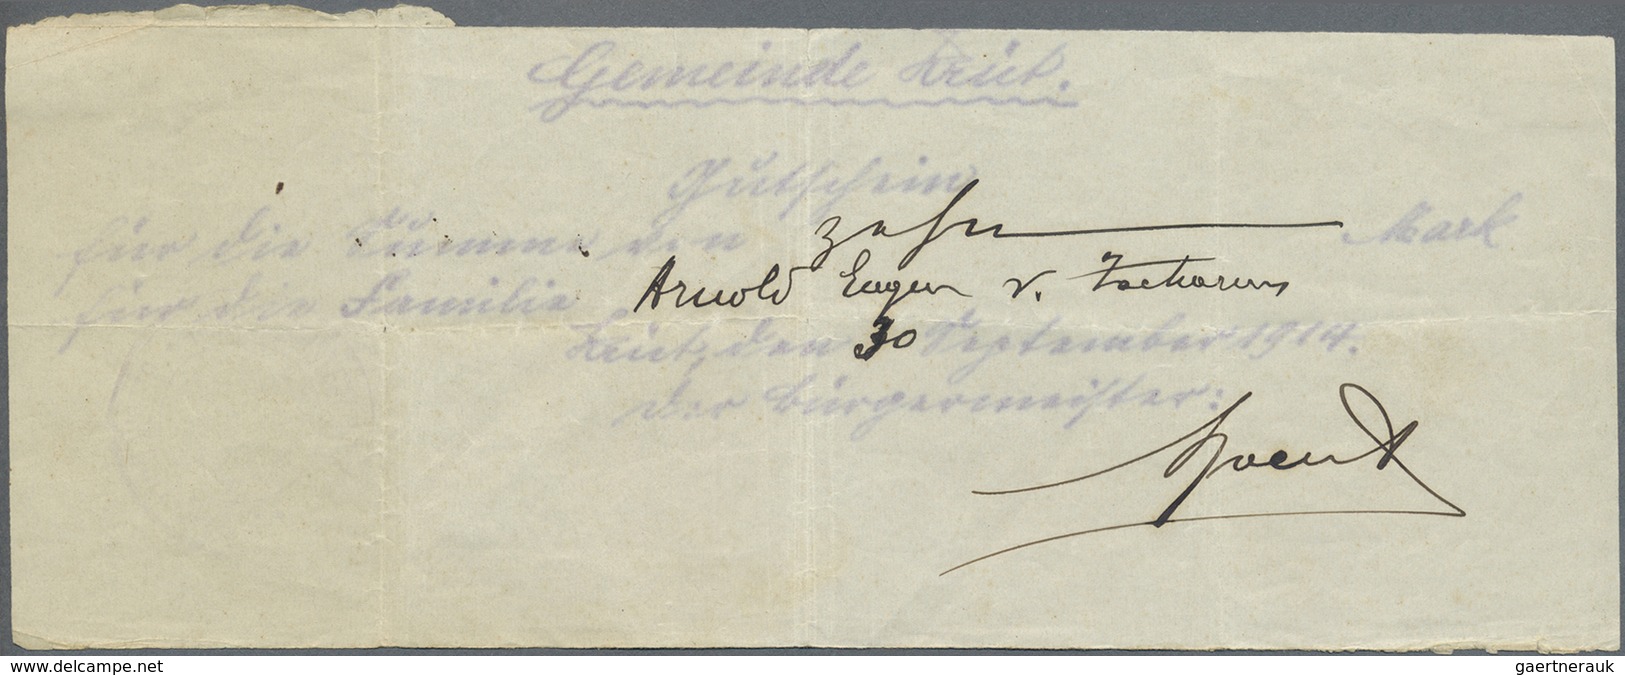 Gemeinde Krüt.
Gutschein
für die Summe von zehn Mark
für die Familie Arnold Eugen v. Zacharias
Krüt, den 30 September 1914.
der Bürgermeister:
www.delcampe.net
gaertnerauk